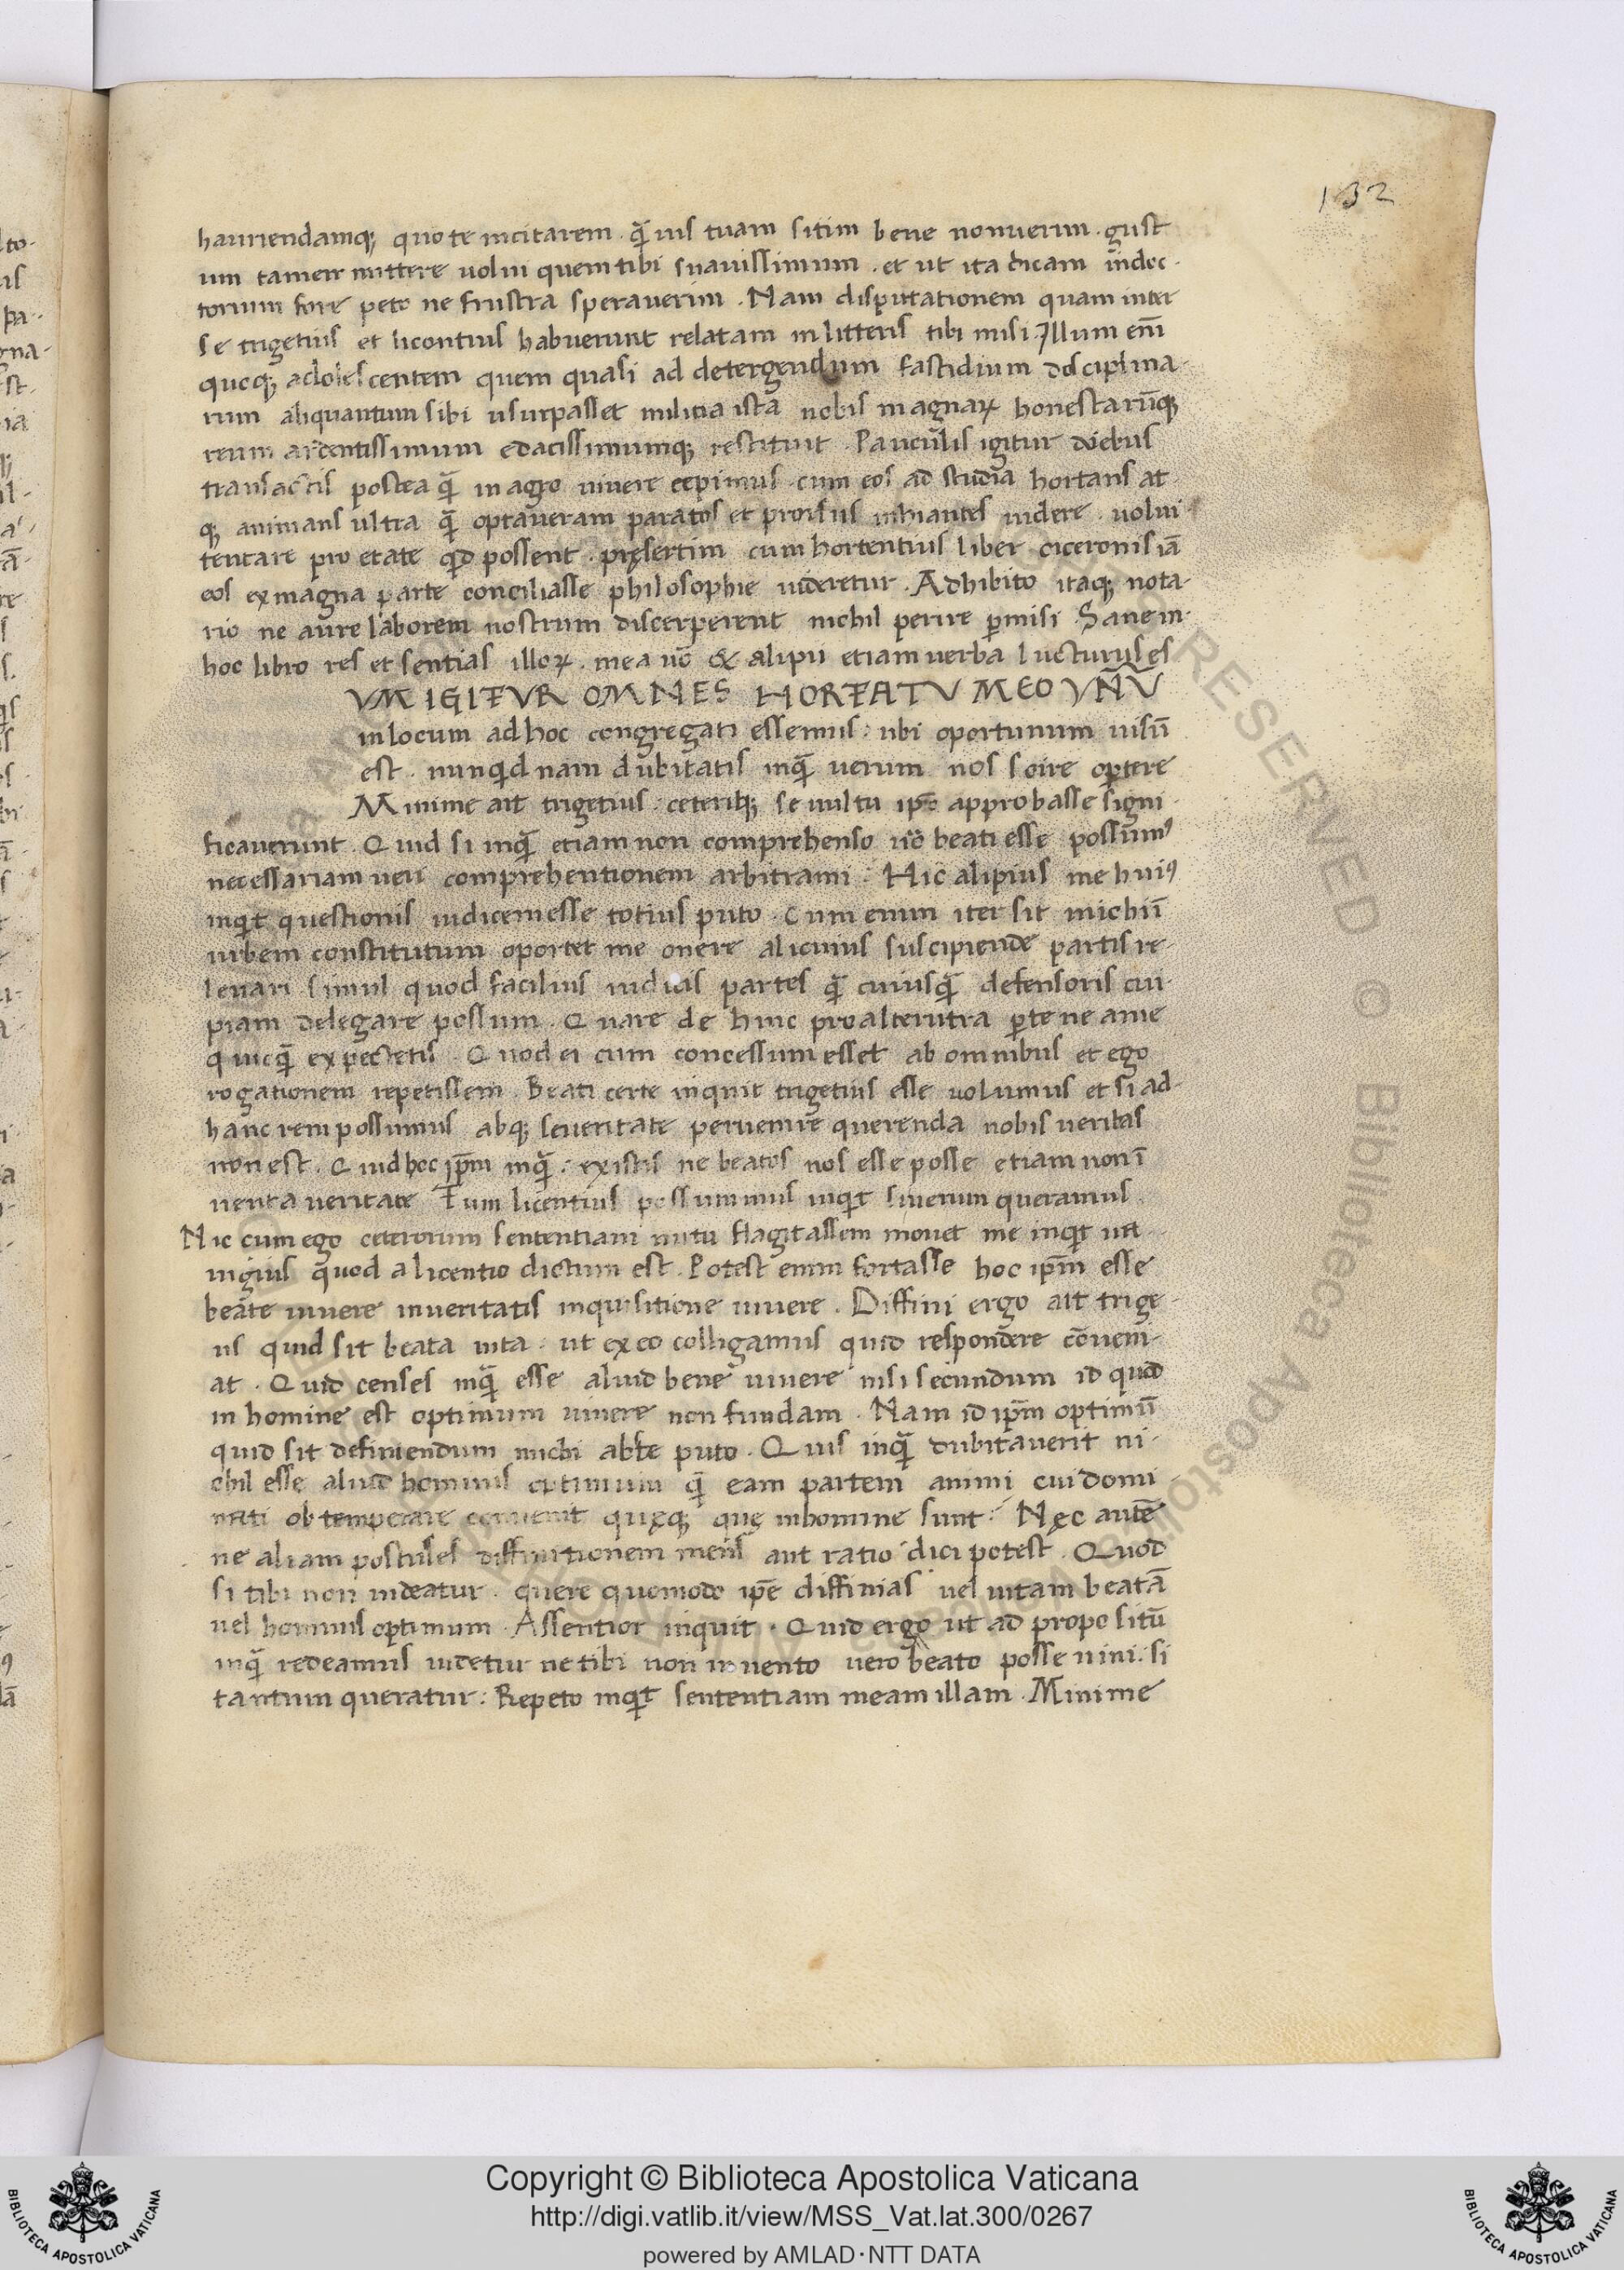 132
hauriendamq; quo te incitarem. quāuis tuam sitim bene nonuerim. gust
um tamen mittere uolui quem tibi suauissimum. et ut ita dicam induc-
torium fore peto ne frustra sperauerim. Nam disputationem quam inter
se trigetius et licontius habuerunt relatam in litteris tibi misi. Illum eni
quoq; adolescentem quem quasi ad detergendum fastidium disciplina-
rum aliquantum sibi usurpasset militia ista nobis magnaꝝ honestarūq;
rerum ardentissimum edacissimumq; restituit. Pauculis igitur diebus
transactis postea quā in agro uiuere cepimus. cum eos ad studia hortans at
q; animans ultra quā optaueram paratos et prorsus inhiantes uidere. uolui
tentare pro etate qd possent. pręsertim cum hortentius liber ciceronis iā
eos ex magna parte conciliasse philosophie uideretur. Adhibito itaq; nota-
rio ne aure laborem nostrum discerperent nichil perire pmisi. Sane in-
hoc libro res et sentias illoꝝ. mea uō & alipii etiam uerba lucturus es
VM IGITVR OMNES HORTATV MEO VNV̄
in locum ad hoc congregati essemus: ubi oportunum uisū
est. nunqd nam dubitatis inquā uerum nos scire optere
Minime ait trigetius: ceteriq; se uultu ipō approbasse signi-
ficauerunt. Quid si inquā etiam non comprehenso uō beati esse possum⁹
necessariam ueri comprehentionem arbitrami: Hic alipius me hui⁹
inqt questionis iudicem esse totius puto. Cum enim iter sit michi ī
urbem constitutum oportet me onere alicuius suscipiende partis re-
leuari simul quod facilius iudicis partes quā cuiusquā defensoris cui-
piam delegare possum. Quare de hinc pro alterutra pte ne a me
quicquā expectetis. Quod ei cum concessum esset ab omnibus et ego
rogationem repetissem. Beati certe inquit trigetius esse uolumus et si ad-
hanc rem possumus absq; seueritate peruenire querenda nobis ueritas
non est. Quid hoc ipm inquā: existis ne beatos nos esse posse etiam non ī
uenta ueritate Tum licentius possummus inqt si uerum queramus.
Hic cum ego ceterorum sententiam nutu flagitassem mouet me inqt na
uigius quod a licentio dictum est. Potest enim fortasse hoc ipm esse
beate uiuere in ueritatis inquisitione uiuere. Diffini ergo ait trige-
us quid sit beata uita: ut ex eo colligamus quid respondere cōueni-
at. Quid censes inquā esse aliud bene uiuere nisi secundum id quod
in homine est optimum uiuere non fundam. Nam id ipm optimū
quid sit definiendum michi abs te puto. Quis inquā dubitauerit ni-
chil esse aliud hominis optimum quā eam partem animi cui domi-
nati obtemperare conuenit quęq; quę in homine sunt: Nęc autē
ne aliam postules diffinitionem mens aut ratio dici potest. Quod
si tibi non uideatur. quere quomodo ipē diffinias uel uitam beatā
uel hominis optimum. Assentior inquit. Quid ergo ut ad propositū
inquā redeamus uidetur ne tibi non inuento uero beato posse uiui: si
tantum queratur: Repeto inqt sententiam meam illam. Minime
Copyright © Biblioteca Apostolica Vaticana
http://digi.vatlib.it/view/MSS_Vat.lat.300/0267
powered by AMLAD·NTT DATA